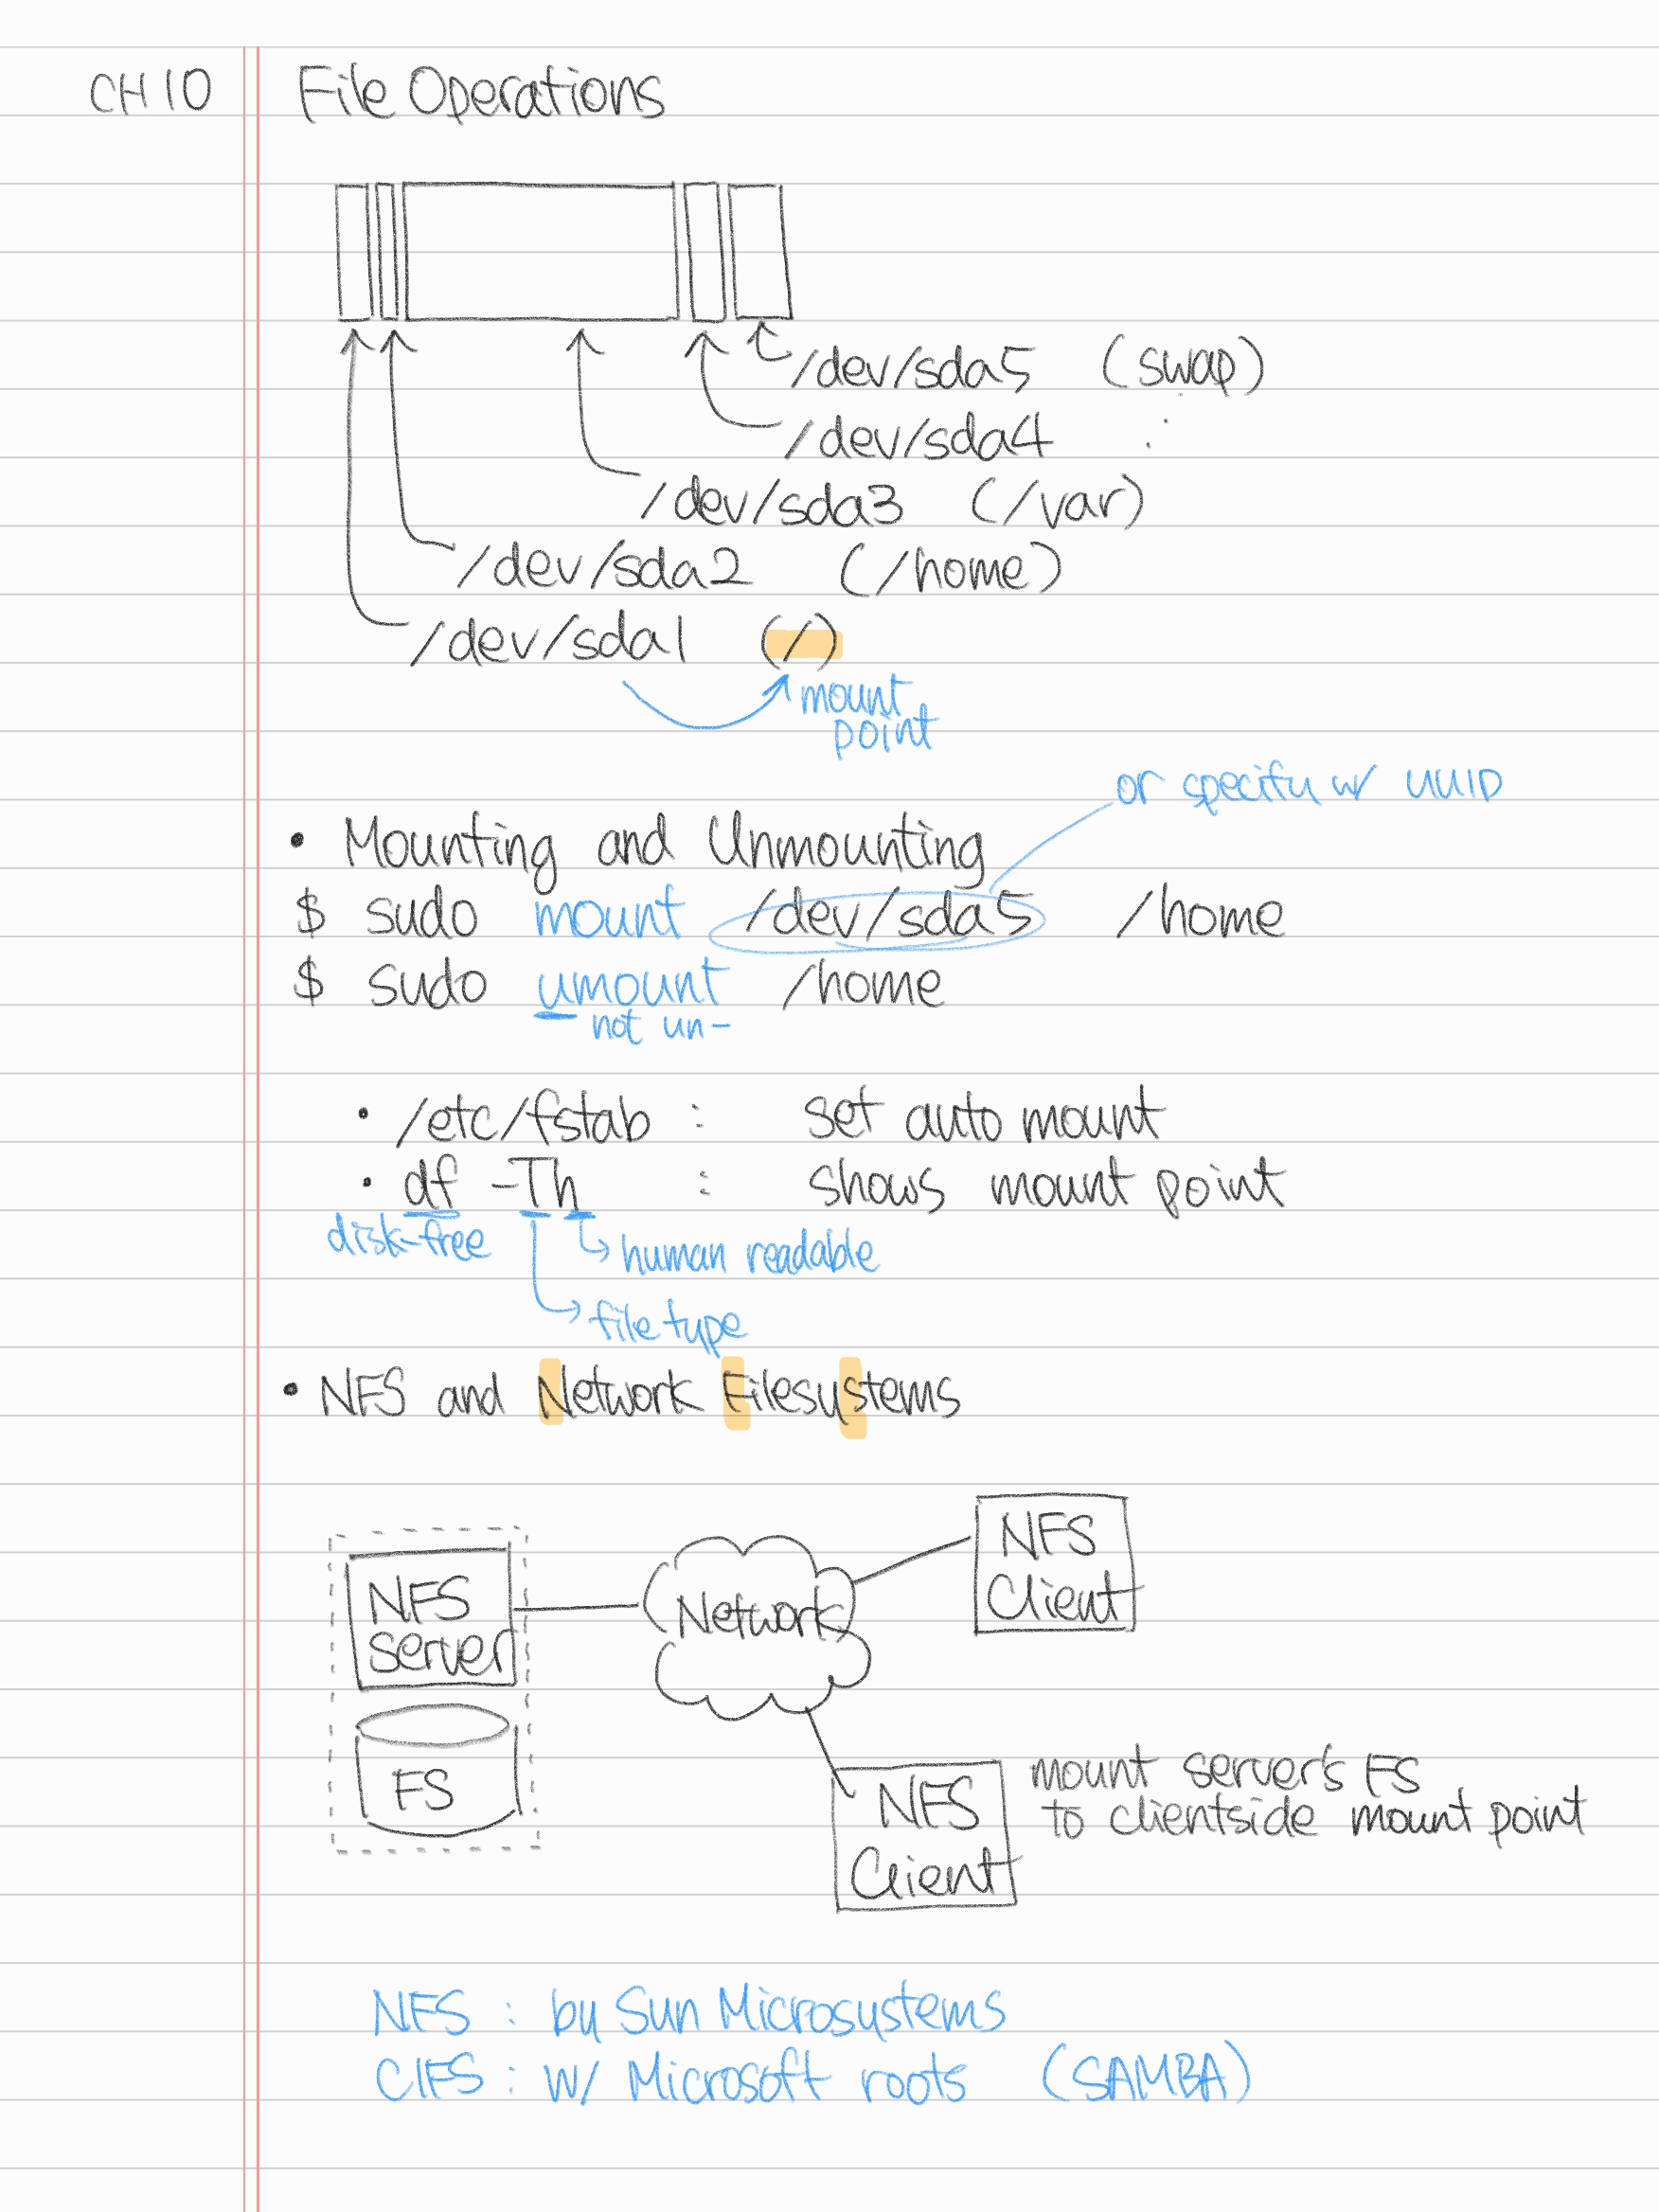 CH 10 File Operations
/dev/sda5 (swap)
/dev/sda4 :
/dev/sda3 (/var)
/dev/sda2 (/home)
/dev/sda1 (/)
mount
point
or specify w/ UUID
• Mounting and Unmounting
$ sudo mount /dev/sda5 /home
$ sudo umount /home
not un-
• /etc/fstab : set auto mount
• df -Th : shows mount point
disk-free
human readable
file type
• NFS and Network Filesystems
NFS
Client
NFS
server
Network
FS
NFS
Client
mount server's FS
to clientside mount point
NFS : by Sun Microsystems
CIFS : w/ Microsoft roots (SAMBA)